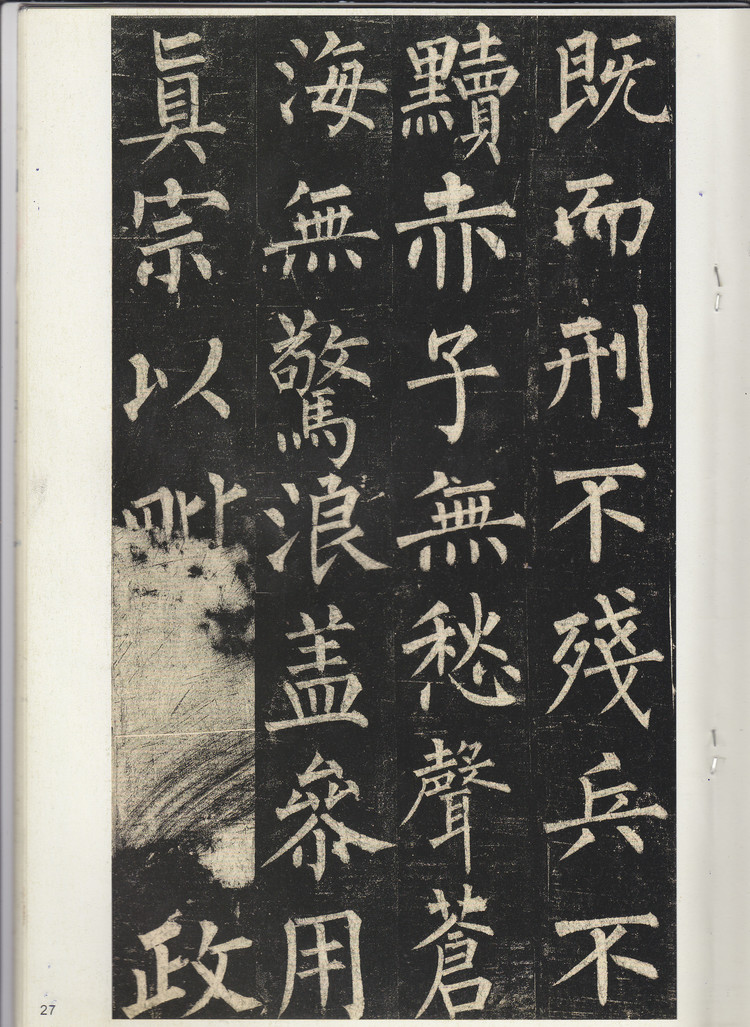 既而刑不殘兵不
黷赤子無愁聲蒼
海無驚浪盖參用
眞宗以毗政
27